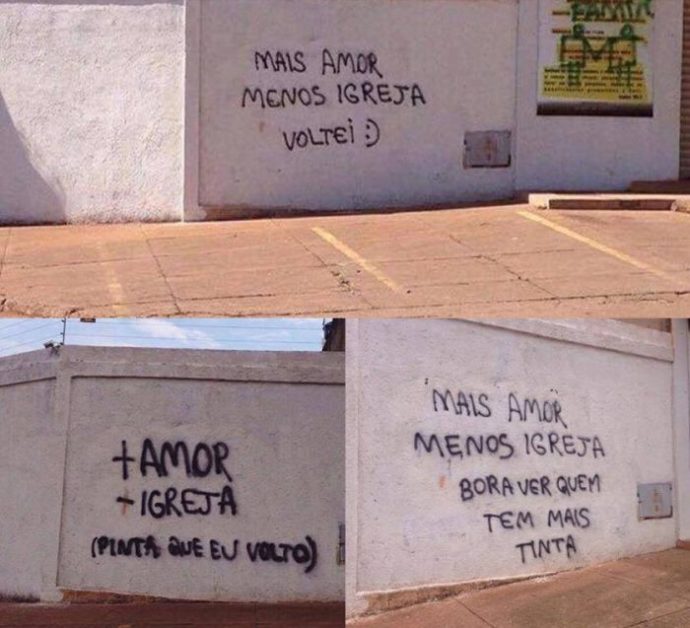 MAIS AMOR
MENOS IGREJA
VOLTEI :)
FAMIN
+AMOR
-IGREJA
(PINTA QUE EU VOLTO)
MAIS AMOR
MENOS IGREJA
BORA VER QUEM
TEM MAIS
TINTA